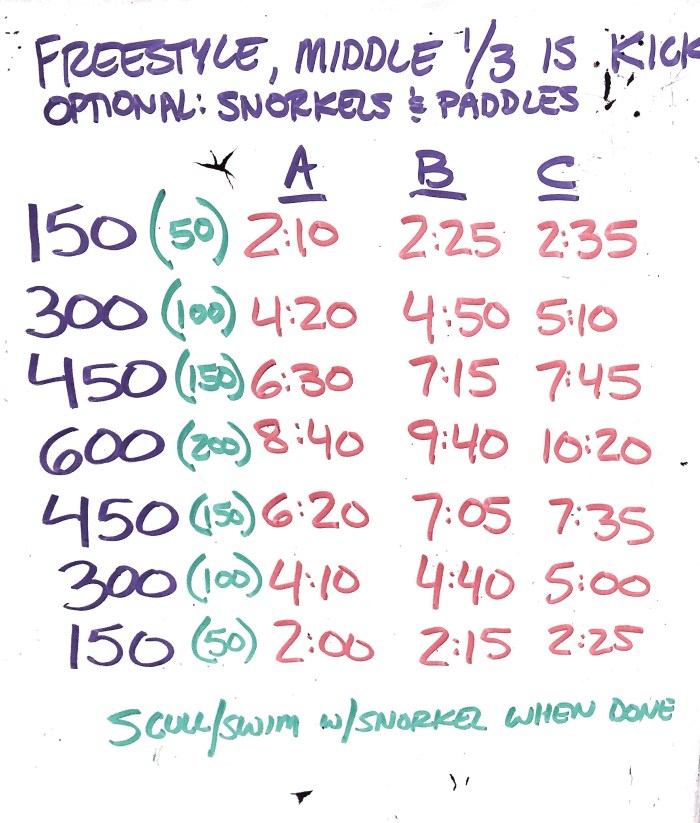 FREESTYLE, MIDDLE 1/3 IS KICK
OPTIONAL: SNORKELS & PADDLES !
A B C
150 (50) 2:10 2:25 2:35
300 (100) 4:20 4:50 5:10
450 (150) 6:30 7:15 7:45
600 (200) 8:40 9:40 10:20
450 (150) 6:20 7:05 7:35
300 (100) 4:10 4:40 5:00
150 (50) 2:00 2:15 2:25
SCULL/SWIM W/SNORKEL WHEN DONE